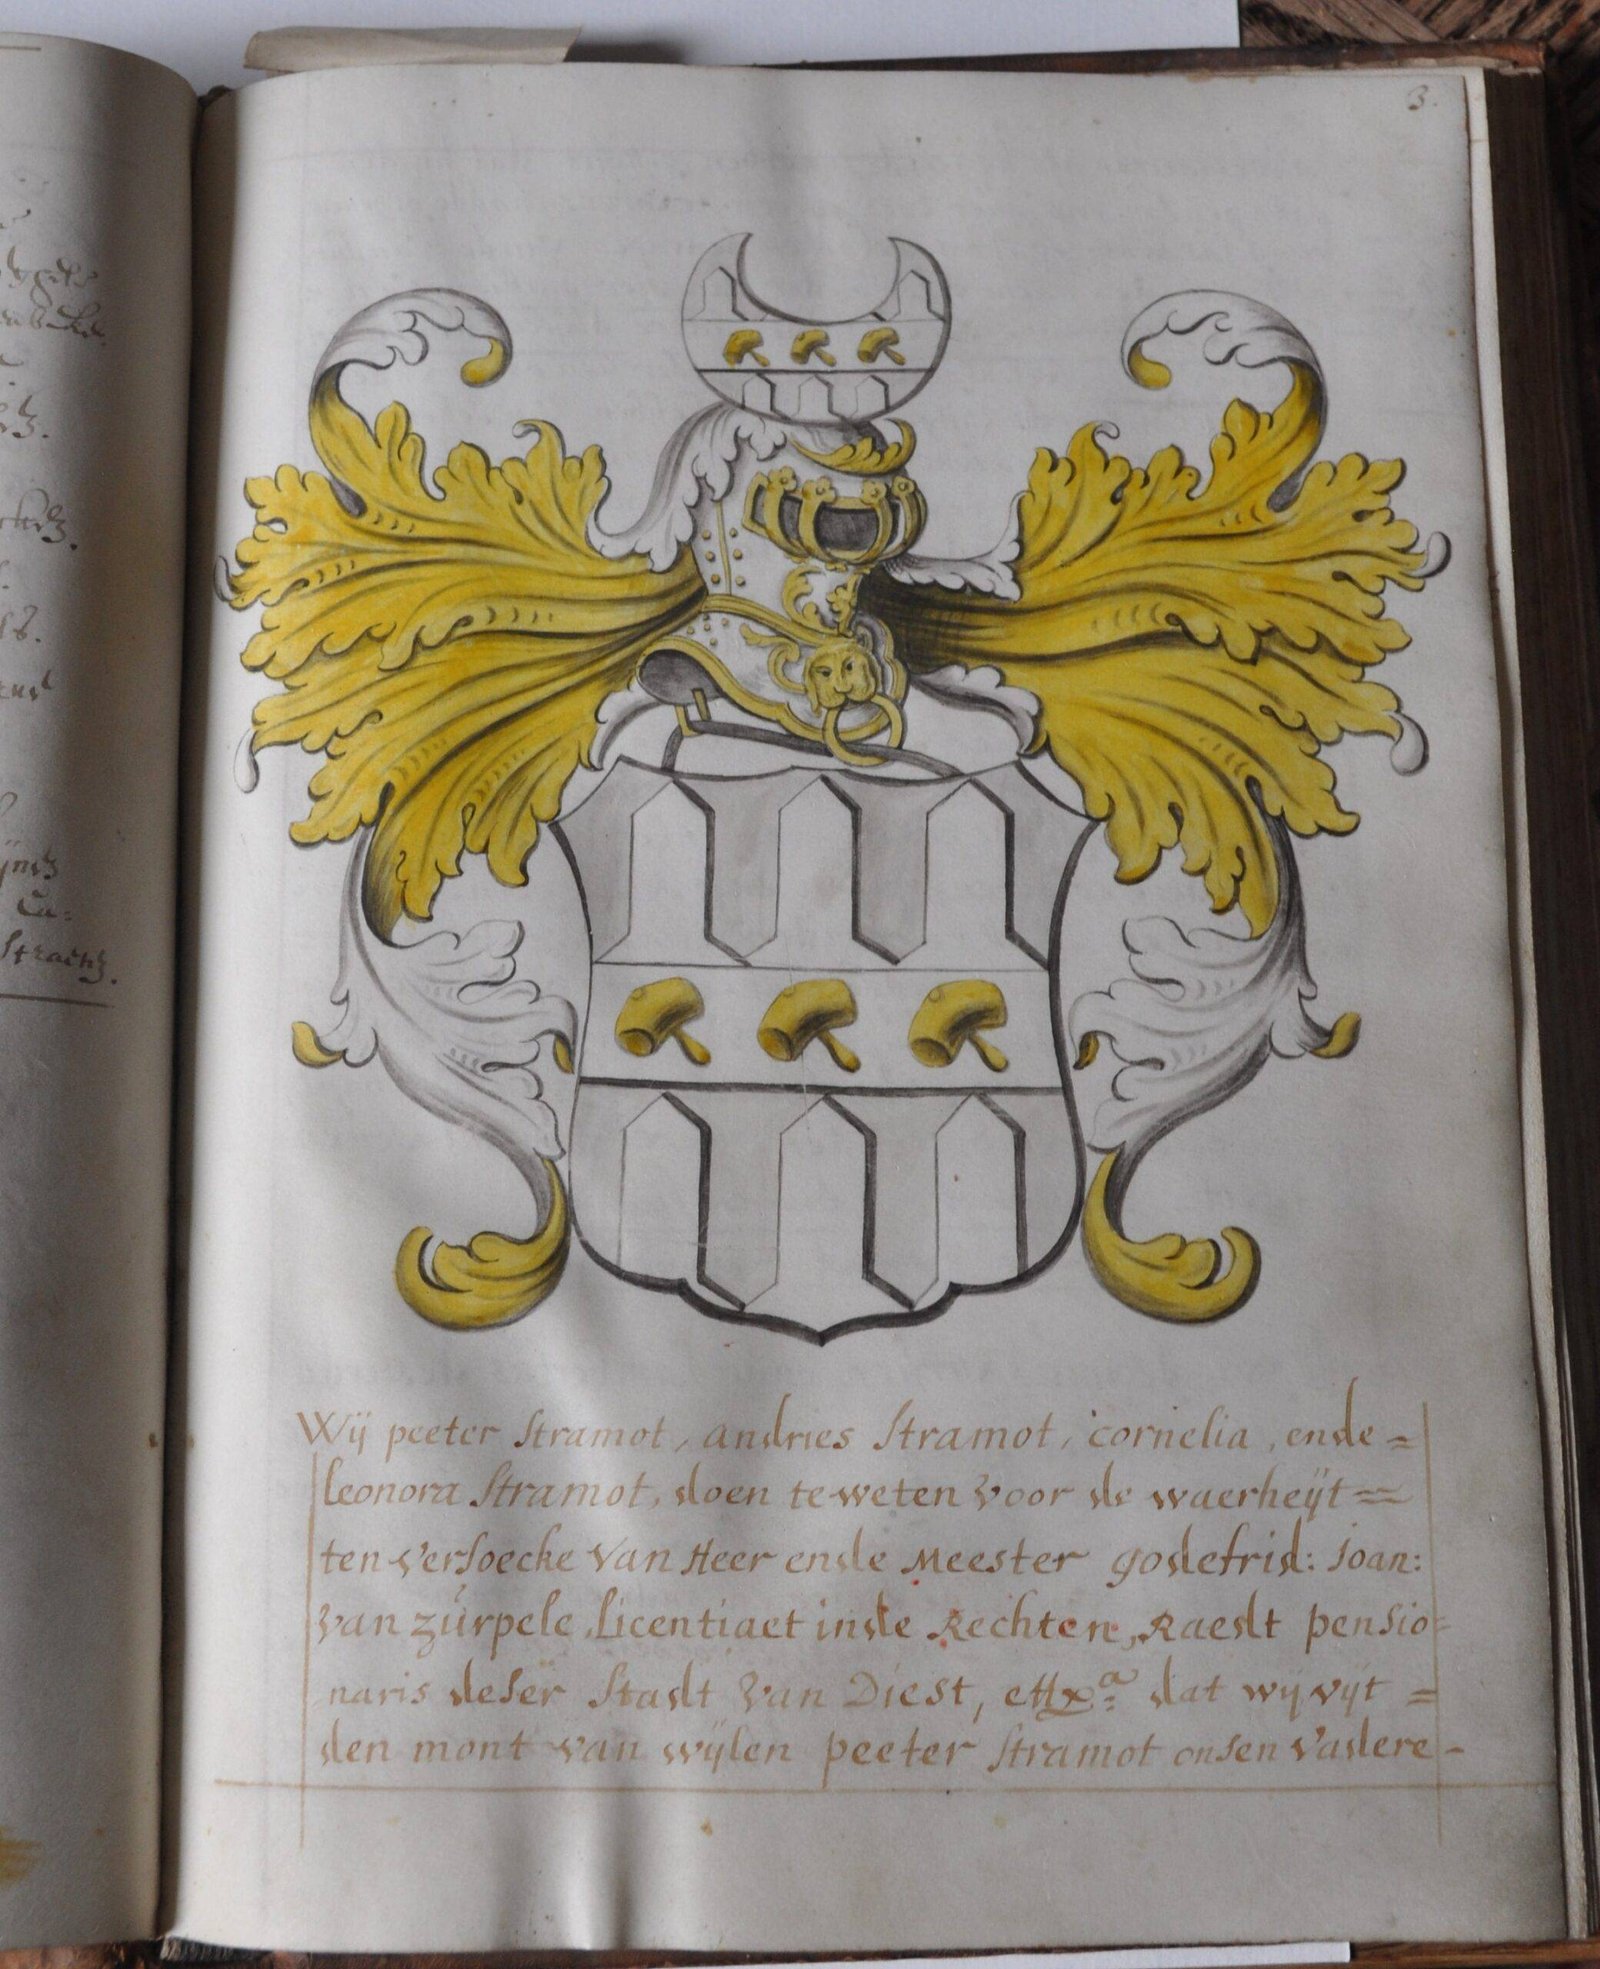 3.
Wij peeter Stramot, andries Stramot, cornelia, ende=
leonora Stramot, doen te weten voor de waerheijt=
ten versoecke van Heer ende Meester godefrid: joan:
van zúrpele Licentiaet in de Rechten, Raedt pensio=
naris deser Stadt van Diest, dat wij vijt=
den mont van wijlen peeter Stramot onsen vadere-